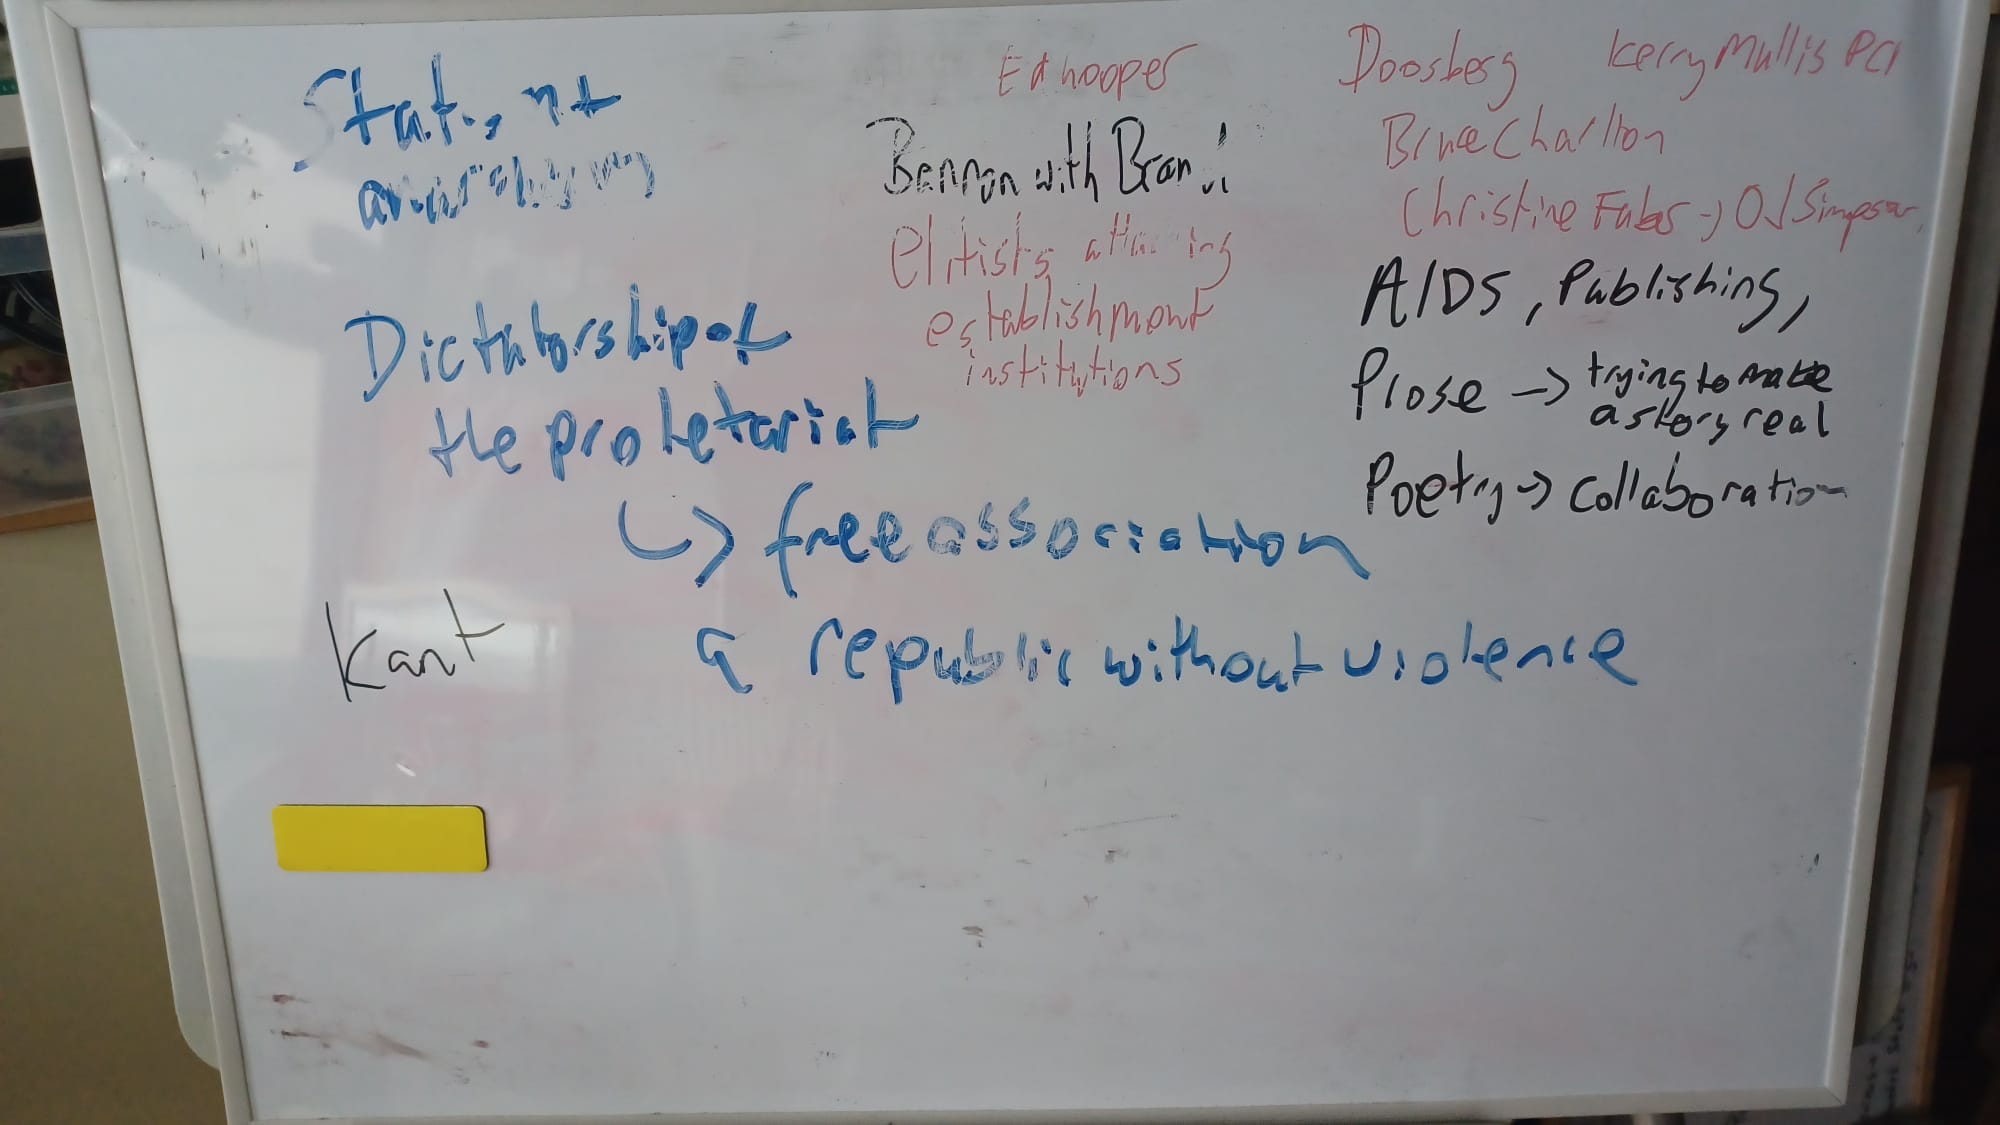 Ed hooper
Bannon with Brand
elitists attacking
establishment
institutions
Doosberg
Kerry Mullis PCR
Bruce Charlton
Christine
→ OJ Simpson
AIDS, Publishing,
Prose → trying to make
a story real
Poetry → collaboration
Dictatorship of
the proletariat
↳ free association
a republic without violence
Kant